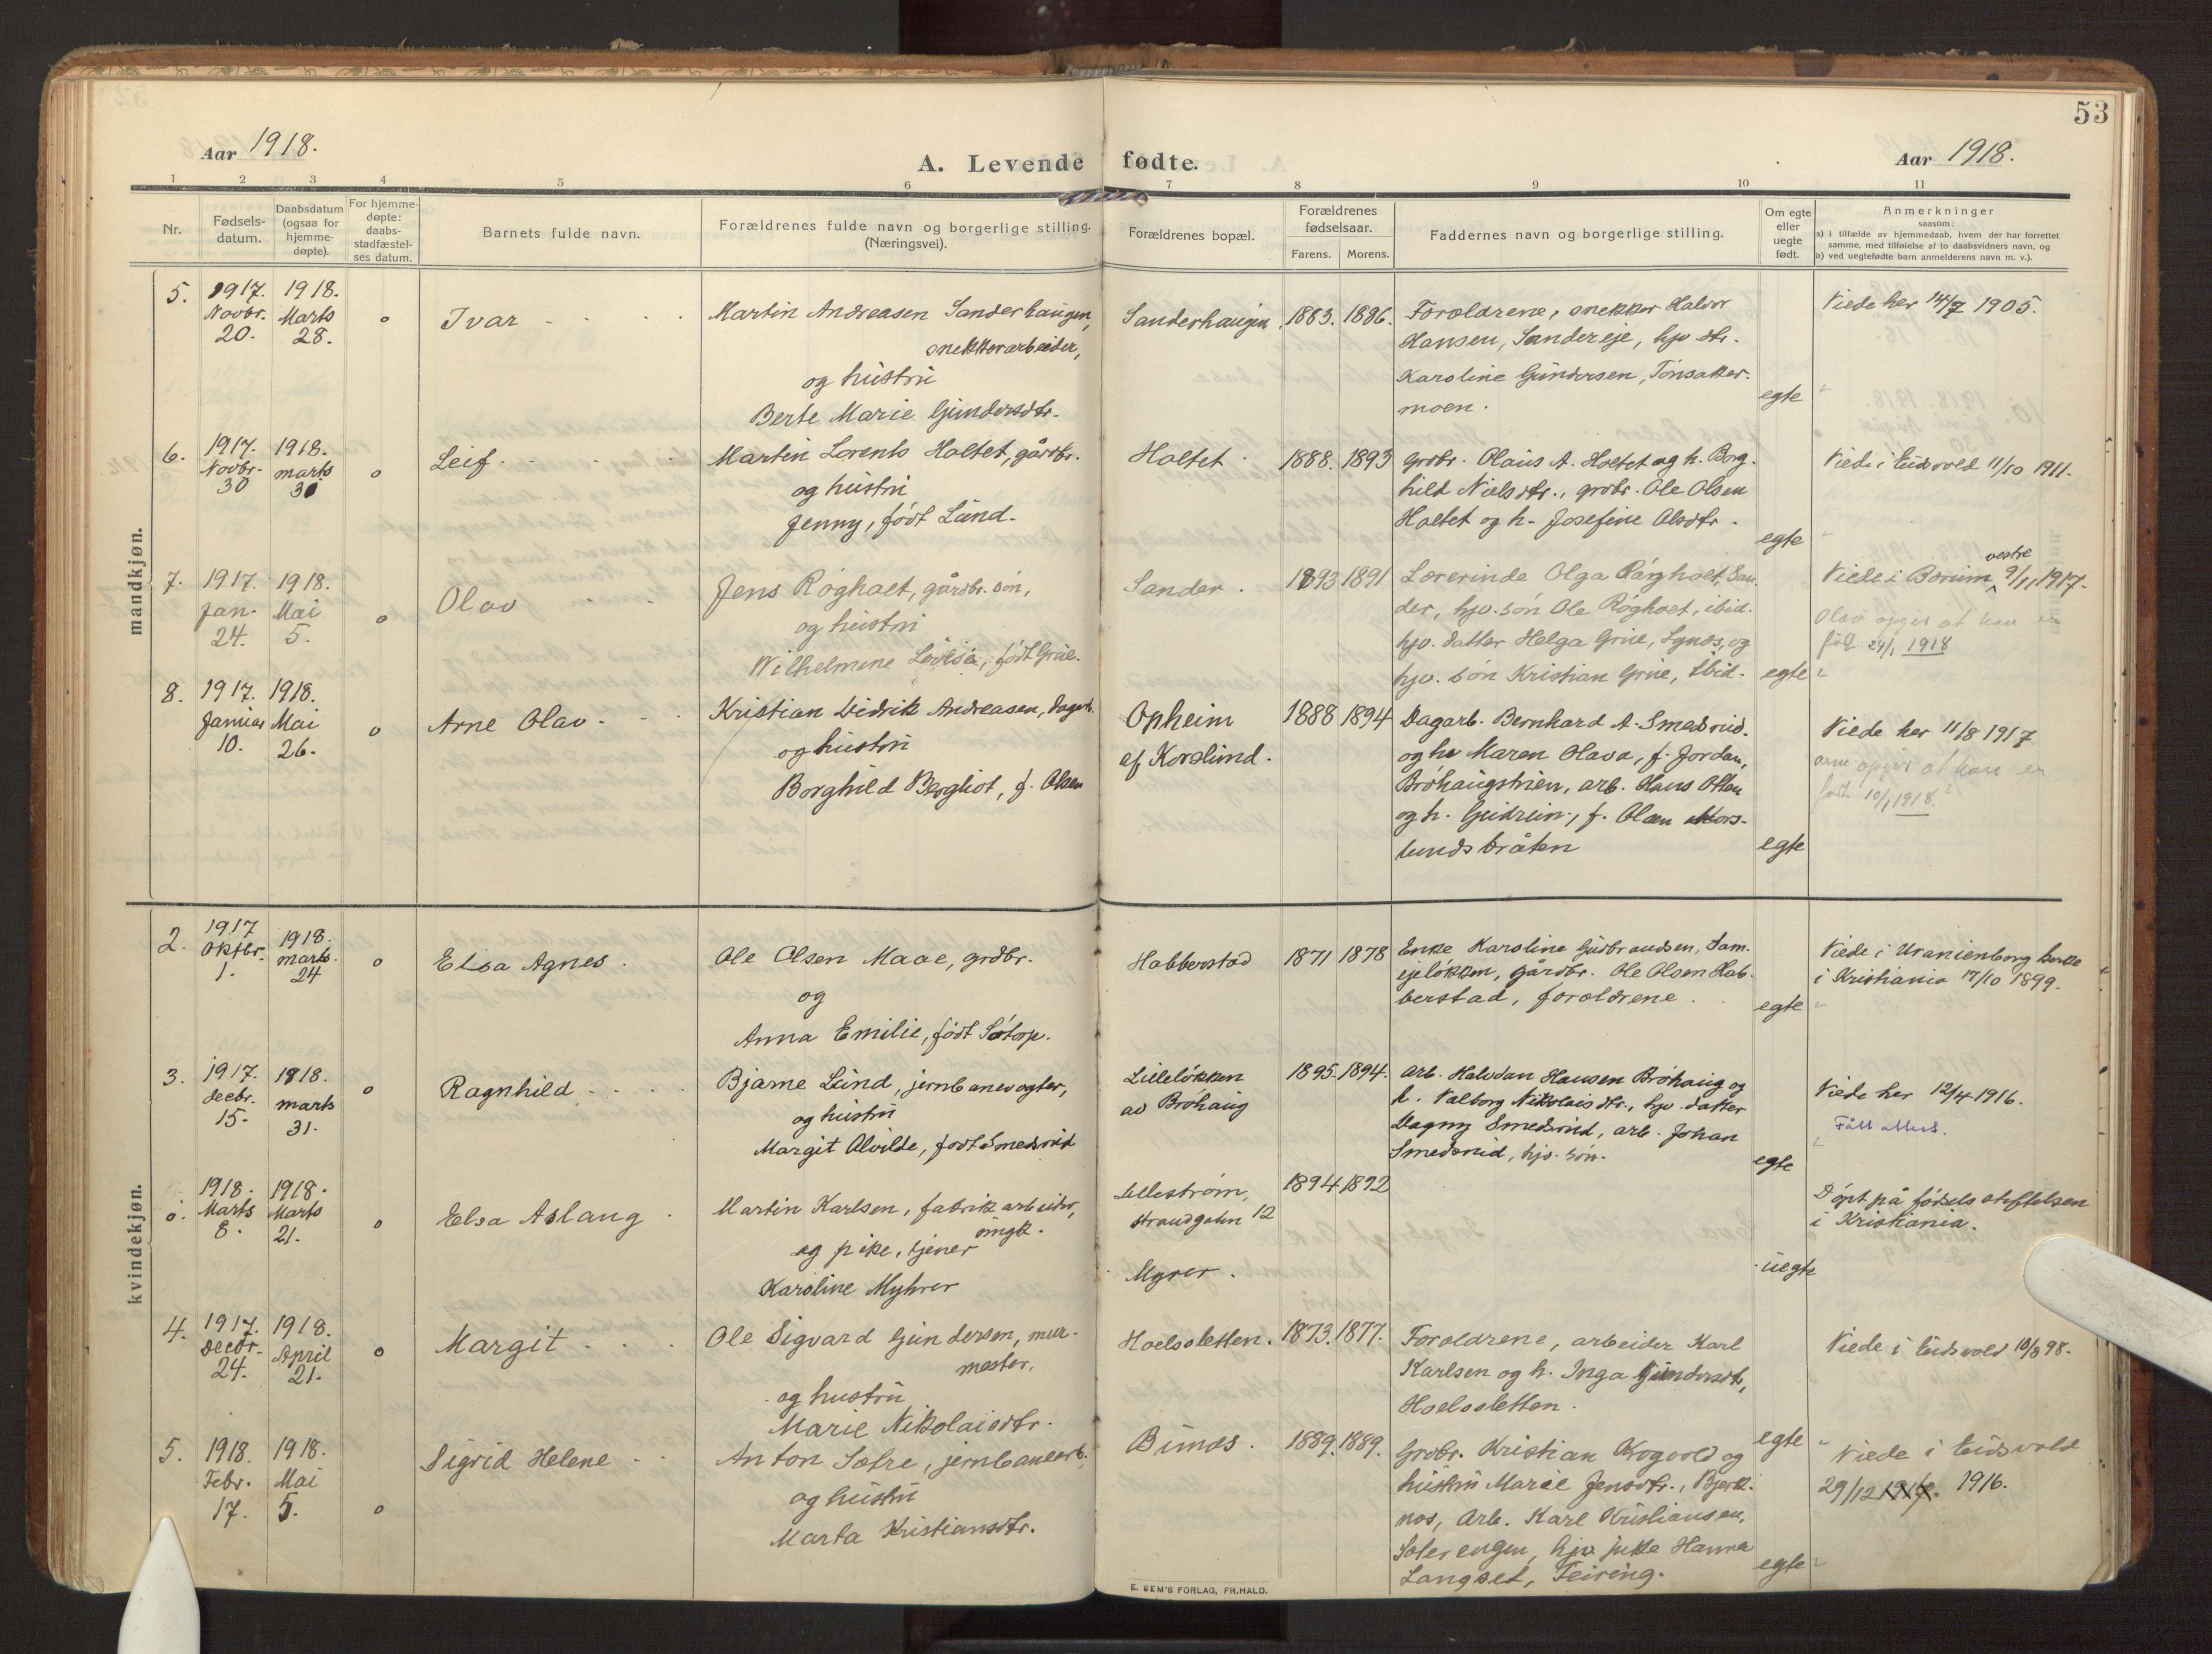 53
Aar 1918.
A. Levende fødte.
Aar 1918.
1 2 3 4 5 6 7 8 9 10 11
Nr.
Fødsels-
datum.
Daabsdatum
(ogsaa for
hjemme-
døpte).
For hjemme-
døpte:
daabs-
stadfæstel-
ses datum.
Barnets fulde navn.
Forældrenes fulde navn og borgerlige stilling.
(Næringsvei).
Forældrenes bopæl.
Forældrenes
fødselsaar.
Farens. Morens.
Faddernes navn og borgerlige stilling.
Om egte
eller
uegte
født.
Anmerkninger
saasom:
a) i tilfælde av hjemmedaab, hvem der har forrettet
samme, med tilføielse af to daabsvidners navn, og
b) ved uegtefødte barn anmelderens navn m. v.).
mandkjøn.
5.
1917.
Novbr.
20.
1918.
Marts
28.
o
Ivar
Martin Andreasen Sanderhaugen,
snekkerarbeider,
og hustru
Berte Marie Gundersdtr.
Sanderhaugen
1883. 1886.
Forældrene, snekker Halvor
Hansen, Sandereje, hjv. dtr.
Karoline Gundersen, Tonsaker-
moen.
egte
Viede her 14/7 1905.
6.
1917.
Novbr.
30
1918.
marts
31
o
Leif
Martin Lorents Holtet, gårdbr.
og hustru
Jenny, født Lund.
Holtet
1888. 1893
grdbr. Olaus A. Holtet og h. Borg-
hild Nielsdtr., grdbr. Ole Olsen
Holtet og h. Josefine Olsdtr.
egte
Viede i Eidsvold 11/10 1911.
7.
1917.
Jan.
24.
1918.
Mai
5.
o
Olav
Jens Røgholt, gårdbr. søn,
og hustru
Wilhelmine Lovise, født Grue.
Sander.
1893 1891
Lærerinde Olga Røgholt, San-
der, hjv. søn Ole Røgholt, ibid.
hjv. datter Helga Grue, Lynæs, og
hjv. søn Kristian Grue, ibid.
egte
Viede i vestre Bærum 9/11 1917.
Olav opgir at han er
født 24/1 1918
8.
1917.
Januar
10.
1918.
Mai
26.
o
Arne Olav
Kristian Didrik Andreasen, dagarb.
og hustru
Borghild Bergliot, f. Olsen
Opheim
af Korslund.
1888 1894
Dagarb. Bernhard A. Smedsrud.
og h. Maren Olava, f. Jordan,
Brøhaugstuen, arb. Hans Olsen
og h. Gudrun, f. Olsen Kors-
lundsbråten
egte
Viede her 11/8 1917
Arne opgir at han er
født 10/1 1918.
kvindekjøn.
2.
1917
Oktbr.
1.
1918.
marts.
24
o
Elsa Agnes
Ole Olsen Maae, grdbr.
og
Anna Emilie, født Søtorp.
Habberstad
1871 1878
Enke Karoline Gudbrandsen, Sam-
ejeløkken, gårdbr. Ole Olsen Hab-
berstad, forældrene
egte
Viede i Uranienborg kirke
i Kristiania 17/10 1899.
3.
1917.
Decbr.
15.
1918.
marts
31.
o
Ragnhild
Bjarne Lund, jernbanevogter,
og hustru
Margit Alvilde, født Smedsrud
Lilleløkken
av Brøhaug
1895. 1894.
Arb. Halvdan Hansen Brøhaug og
h. Valborg Nikolaisdtr., hjv. datter
Dagny Smedsrud, arb. Johan
Smedsrud, hjv. søn.
egte
Viede her 12/4 1916.
Fått attest.
o.
1918.
Marts
8.
1918.
Marts
21.
o
Elsa Aslaug
Martin Karlsen, fabrikarbeider,
ungk.
og pike, tjener
Karoline Myhrer
Lillestrøm,
Strandgaten 12
Myrer.
1894 1892
uegte
Døpt på fødselsstiftelsen
i Kristiania.
4.
1917.
Decbr.
24.
1918.
April
21.
o
Margit
Ole Sigvard Gundersen, mur-
mester,
og hustru
Marie Nikolaisdtr.
Hoelssletten.
1873. 1877.
Forældrene, arbeider Karl
Karlsen og h. Inga Gundersdtr,
Hoelssletten.
egte
Viede i Eidsvold 10/8 98.
5.
1918.
Febr.
17.
1918.
Mai
5.
o
Sigrid Helene
Anton Sætre, jernbanearb.,
og hustru
Marta Kristiansdtr.
Bunæs.
1889. 1889.
Grdbr. Kristian Krogvold og
hustru Marie Jensdtr., Bjerk-
næs, Arb. Karl Kristiansen,
Sæterengen, hjv. pike Hanna
Langset, Feiring.
egte
Viede i Eidsvold
29/12 1916.
E. SEM'S FORLAG, FR.HALD.